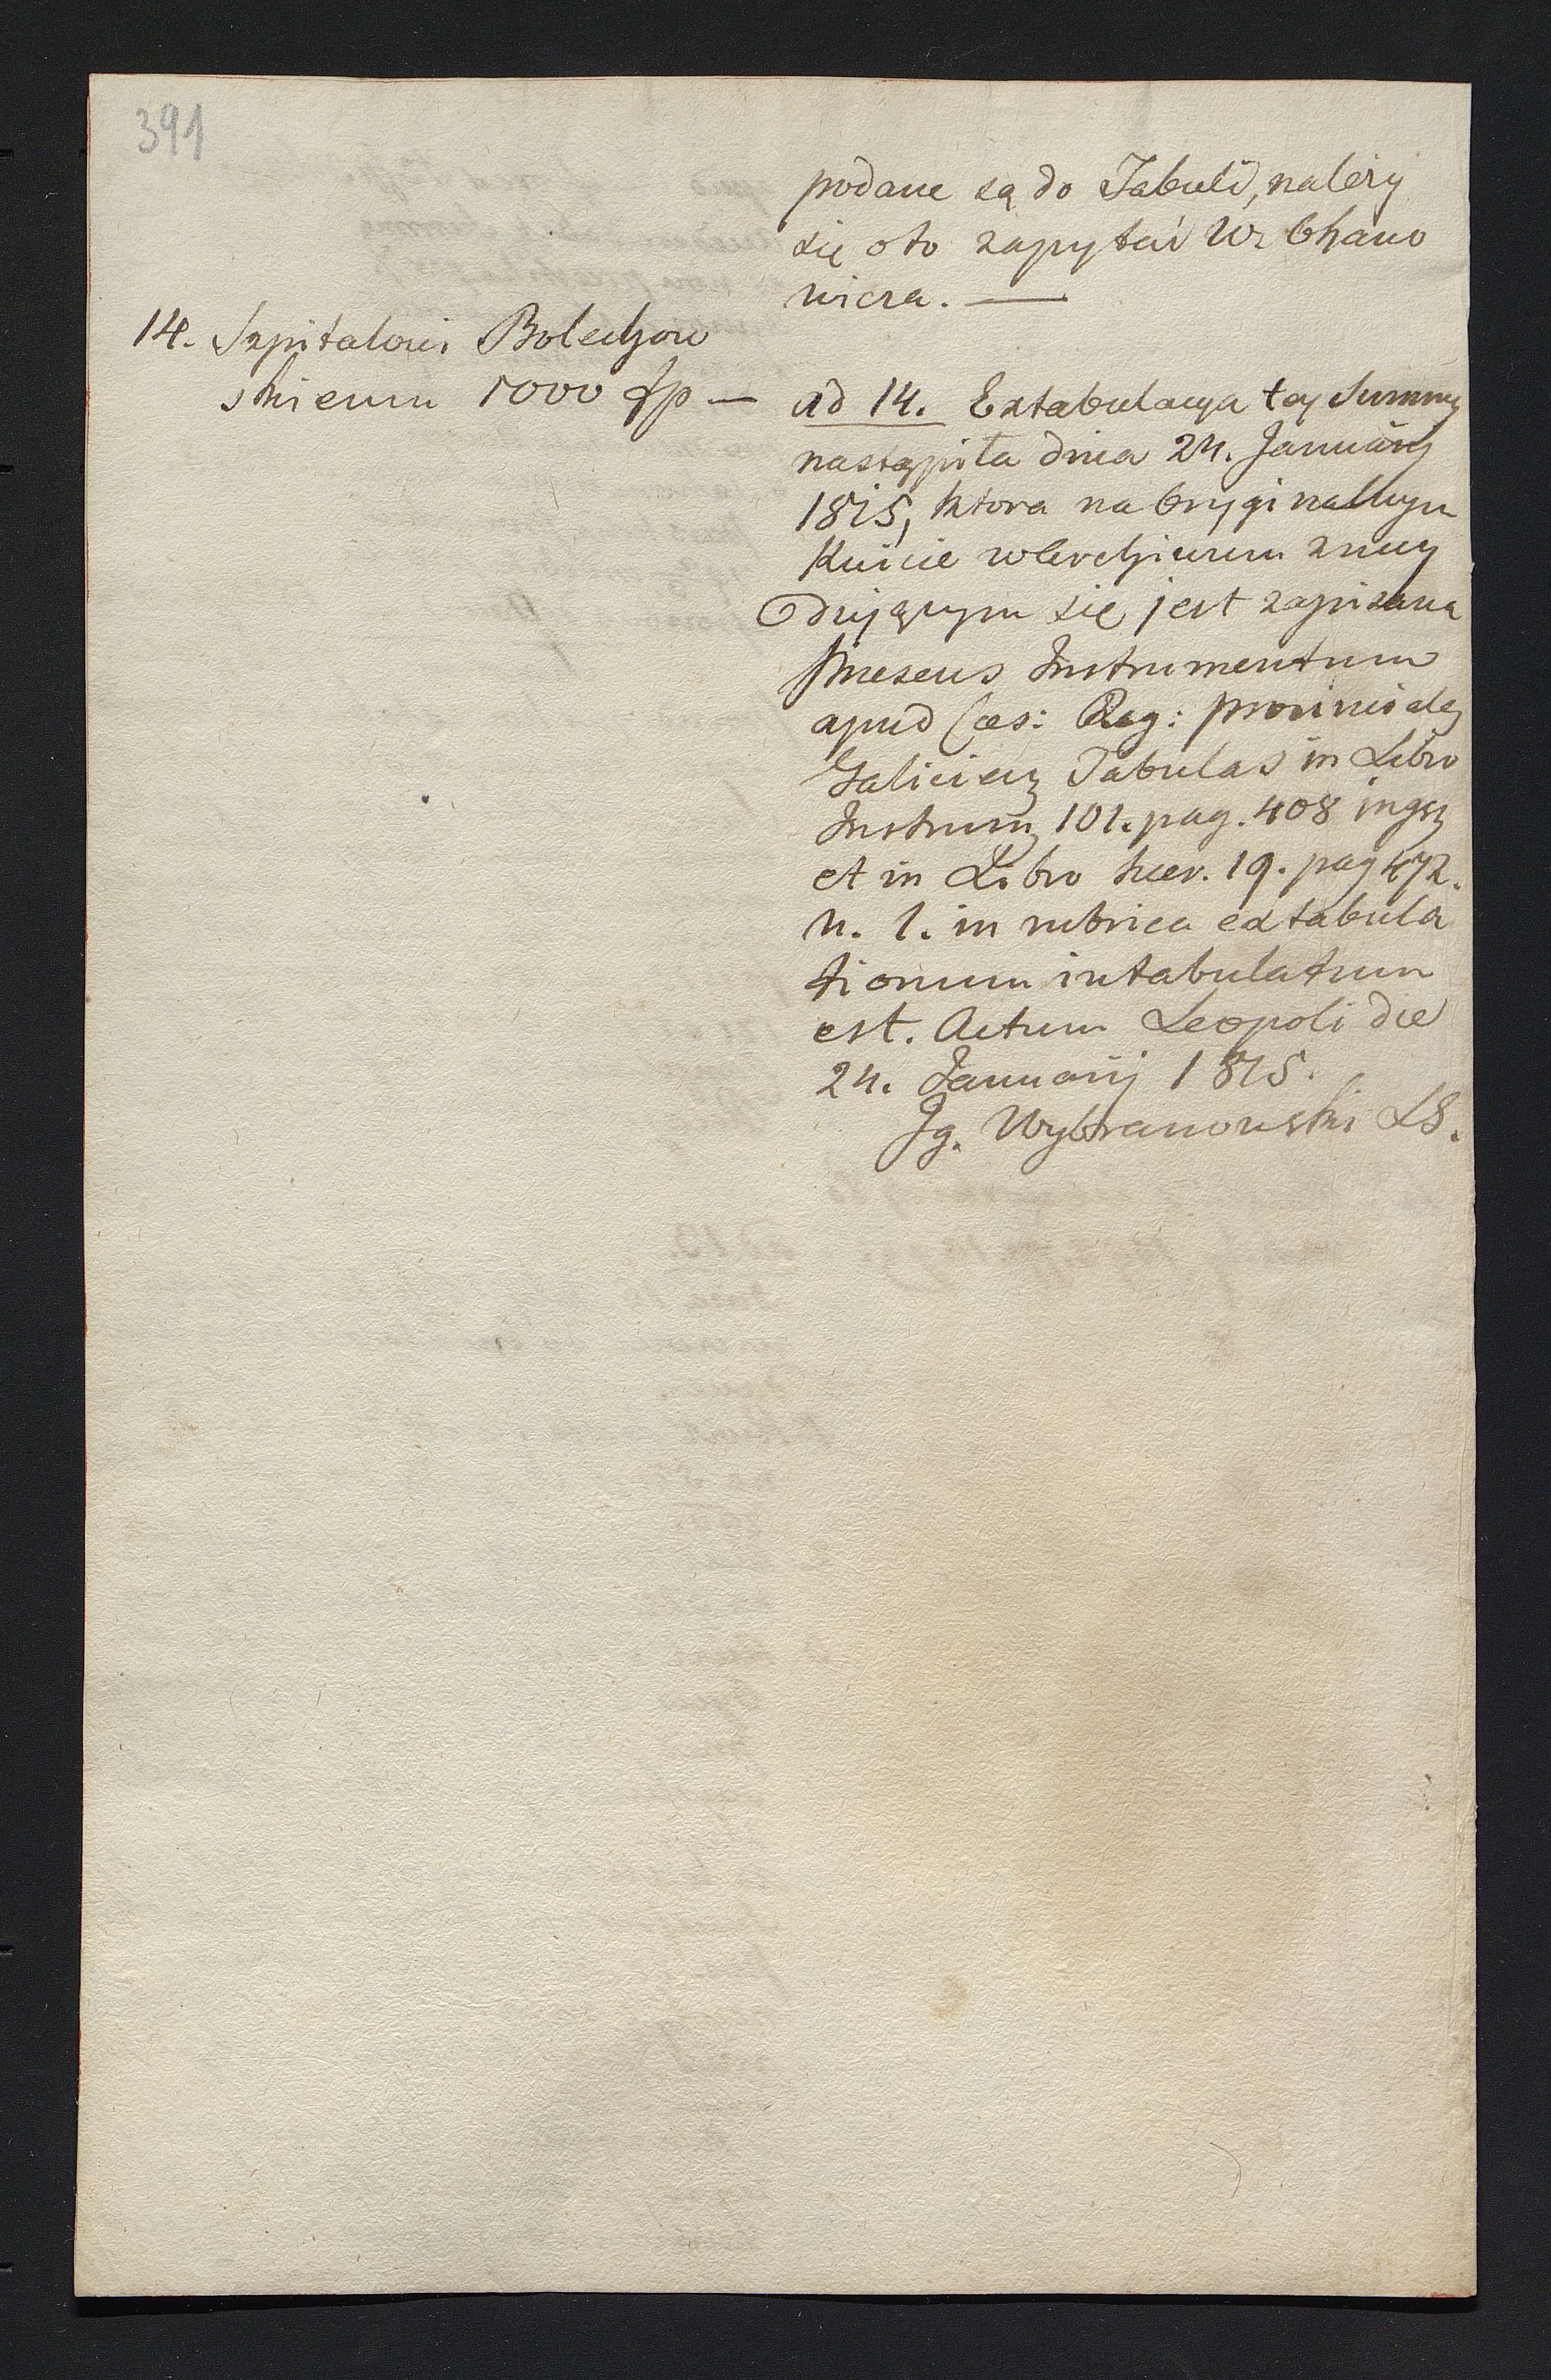 391
podane są do Tabuli, należy
się oto zapytać W. Chano
wicza. —
14. Szpitalowi Bolechow
skiemu 1000 fp —
ad 14. Extabulacya tey Summy
nastąpiła dnia 24. Januarij
1815, ktora na Orygi nalnym
Kwicie w Cerchium znay
duiącym się jest zapisana
Praesens Instrumentum
apud Caes: Reg: provinciales
Galiciae Tabulas in Libro
Instrum 101. pag. 408
et in Libro haer. 19. pag 472.
n. 1. in rubrica extabula
tionum intabulatum
est. Actum Leopoli die
24. Januarij 1815.
Ig. Wybranowski LS.